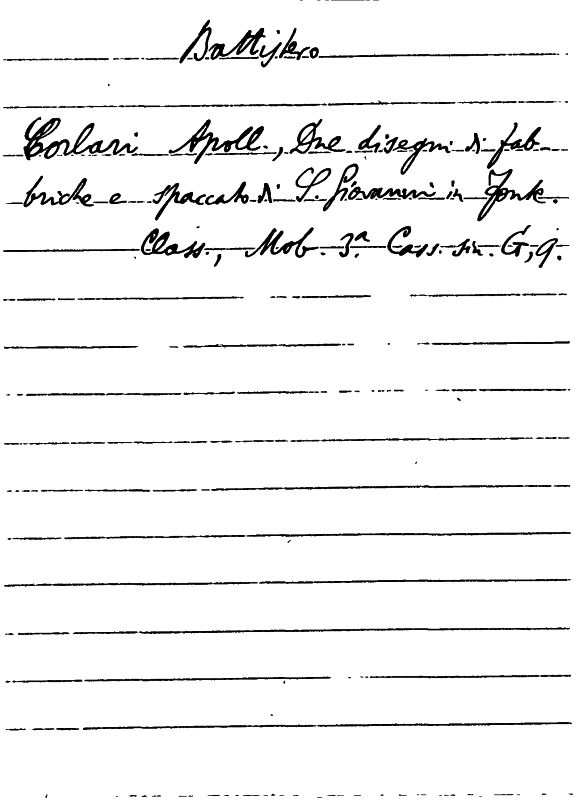 Battistero
Corlari Apoll., Due disegni di fab-
briche e spaccato di S. Giovanni in Fonte.
Class., Mob. 3.ª Cass. sin. G, 9.